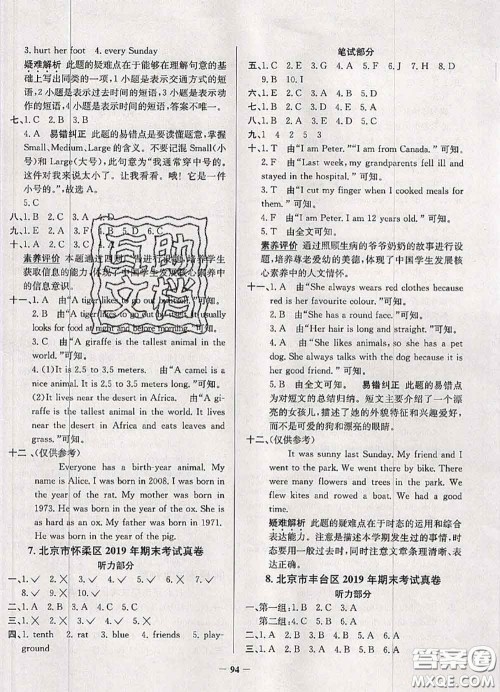 3. hurt her foot 4. every Sunday
疑难解析 此题的疑难点在于能够在理解句意的基
础上写出同类的一项,1 小题是表示交通方式的短
语,2 小题是表示过去时间的短语,3 小题是表示
动作的短语,4 小题是表示频率的短语。
七、1. B 2. C 3. C
4. A 易错纠正 此题的易错点是要读懂题意,掌握
Small,Medium,Large 的含义。不要混 Small(小
号)和 Large(大号),此句为“我通常穿中号的。
这件对我来说太小了。让我看看。哦!它是一件
小号的。”故选 A。
5. C
八、1. B 2. D 3. C 4. A
素养评价
获取信息的能力,体现了中国学生发展核心素养中
的信息意识。
looks for food at night and before morning.”可知。
3. C 由“A giraffe is the tallest animal in the
world.”可知。
4. (1)It is 2.5 to 3.5 meters. 由“A camel is a
nice animal. It is 2.5 to 3.5 meters tall.”可知。
(2)It lives near the desert in Africa. 由“A gi-
raffe is the tallest animal in the world. It lives
near the desert in Africa and eats leaves and
grass.”可知。
十二、(仅供参考)
Everyone has a birth-year animal. My
name is Alice. I was born in 2008. I was born
in the year of the rat. My mother was born in
1973. He was born in the year of the ox. She
is as hard as an ox. My father was born in 1971.
He was born in the year of the pig.
7. 北京市怀柔区 2019 年期末考试真卷
听力部分
一、1. ✓ 2. ✕ 3. ✕ 4. ✓ 5. ✓
二、1. ✕ 2. ✓ 3. ✓ 4. ✕ 5. ✓
三、1. A 2. B 3. A 4. C 5. C
四、1. tenth 2. rat 3. blue 4. friends 5. play-
ground
笔试部分
五、1. C 2. E 3. G 4. A 5. F 6. H 7. J 8. D
9. B 10. I
六、1. A 2. B 3. C 4. C 5. A 6. C 7. B 8. B
七、1. D 2. C 3. E 4. B 5. A
八、1. B 2. D 3. A 4. C 5. E
九、1. 4 2 5 3
2. T 由“I am Peter.”“I am from Canada.”可知。
3. F 由“Last week, my grandparents fell ill and
stayed in the hospital.”可知。
4. T 由“I cut my finger when I cooked meals for
them.”可知。
5. F 由“I am Peter. I am 12 years old.”可知。
素养评价 通过照顾生病的爷爷奶奶的故事进行设
题,培养尊老爱幼的美德,体现了中国学生发展核
心素养中的人文情怀。
十、1. C 由“She always wears red clothes because
red is her favourite colour.”可知。
2. B 由“She has big eyes and a round face.”可知。
3. A 由“Her hair is long and straight.”可知。
4. C 由“She always talks with the dog because it
is her good friend.”可知。
5. B 由全文可知。 易错纠正 此题的易错点
为对短文的总结归纳。文章主要介绍了一个漂
亮的女孩儿,描述了她的外貌特征和兴趣爱好,
而不是可爱的狗和漂亮的眼睛。
十二、(仅供参考)
It was sunny last Sunday. My friend and I
went to the park. We went there by bike. There
were many flowers and trees in the park. We
flew kites and rowed a boat. We had a good
time.
疑难解析 此题的疑难点在于时态的运用和综合表
达能力。在描述本学期发生过的事情时,时态要用
一般过去时,同时要注意文章条理清晰、表达正确。
8. 北京市丰台区 2019 年期末考试真卷
听力部分
一、第一组:1. C 2. A 3. B
第二组:1. B 2. A 3. C
二、1. A 2. B 3. C 4. C 5. B 6. A 7. C
· 94 ·
互助文档
答案圈
MXQE.COM